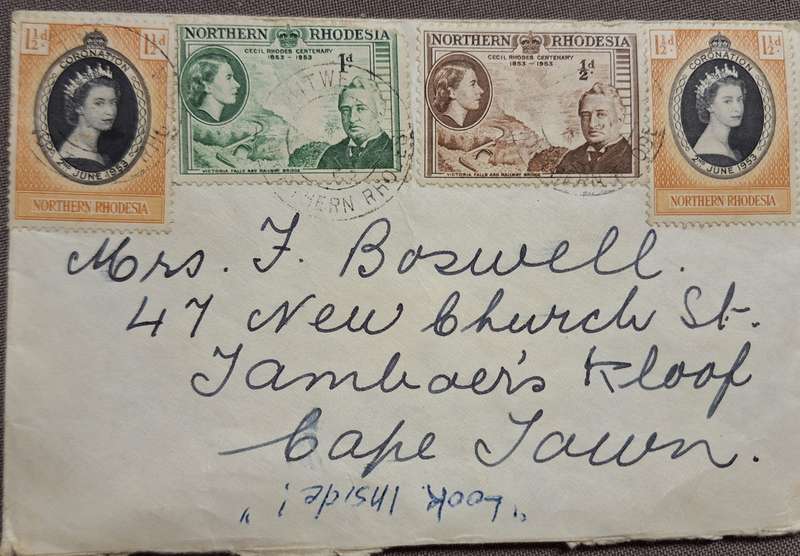 1½d 1½d
CORONATION
2ND JUNE 1953
NORTHERN RHODESIA
NORTHERN RHODESIA
CECIL RHODES CENTENARY
1853 - 1953
1d
VICTORIA FALLS AND RAILWAY BRIDGE
NORTHERN RHODESIA
CECIL RHODES CENTENARY
1853 - 1953
½d.
VICTORIA FALLS AND RAILWAY BRIDGE
1½d 1½d
CORONATION
2ND JUNE 1953
NORTHERN RHODESIA
HERN RHO
Mrs. F. Boswell.
47 New Church St.
Tamboer's Kloof
Cape Town.
"Look Inside!"